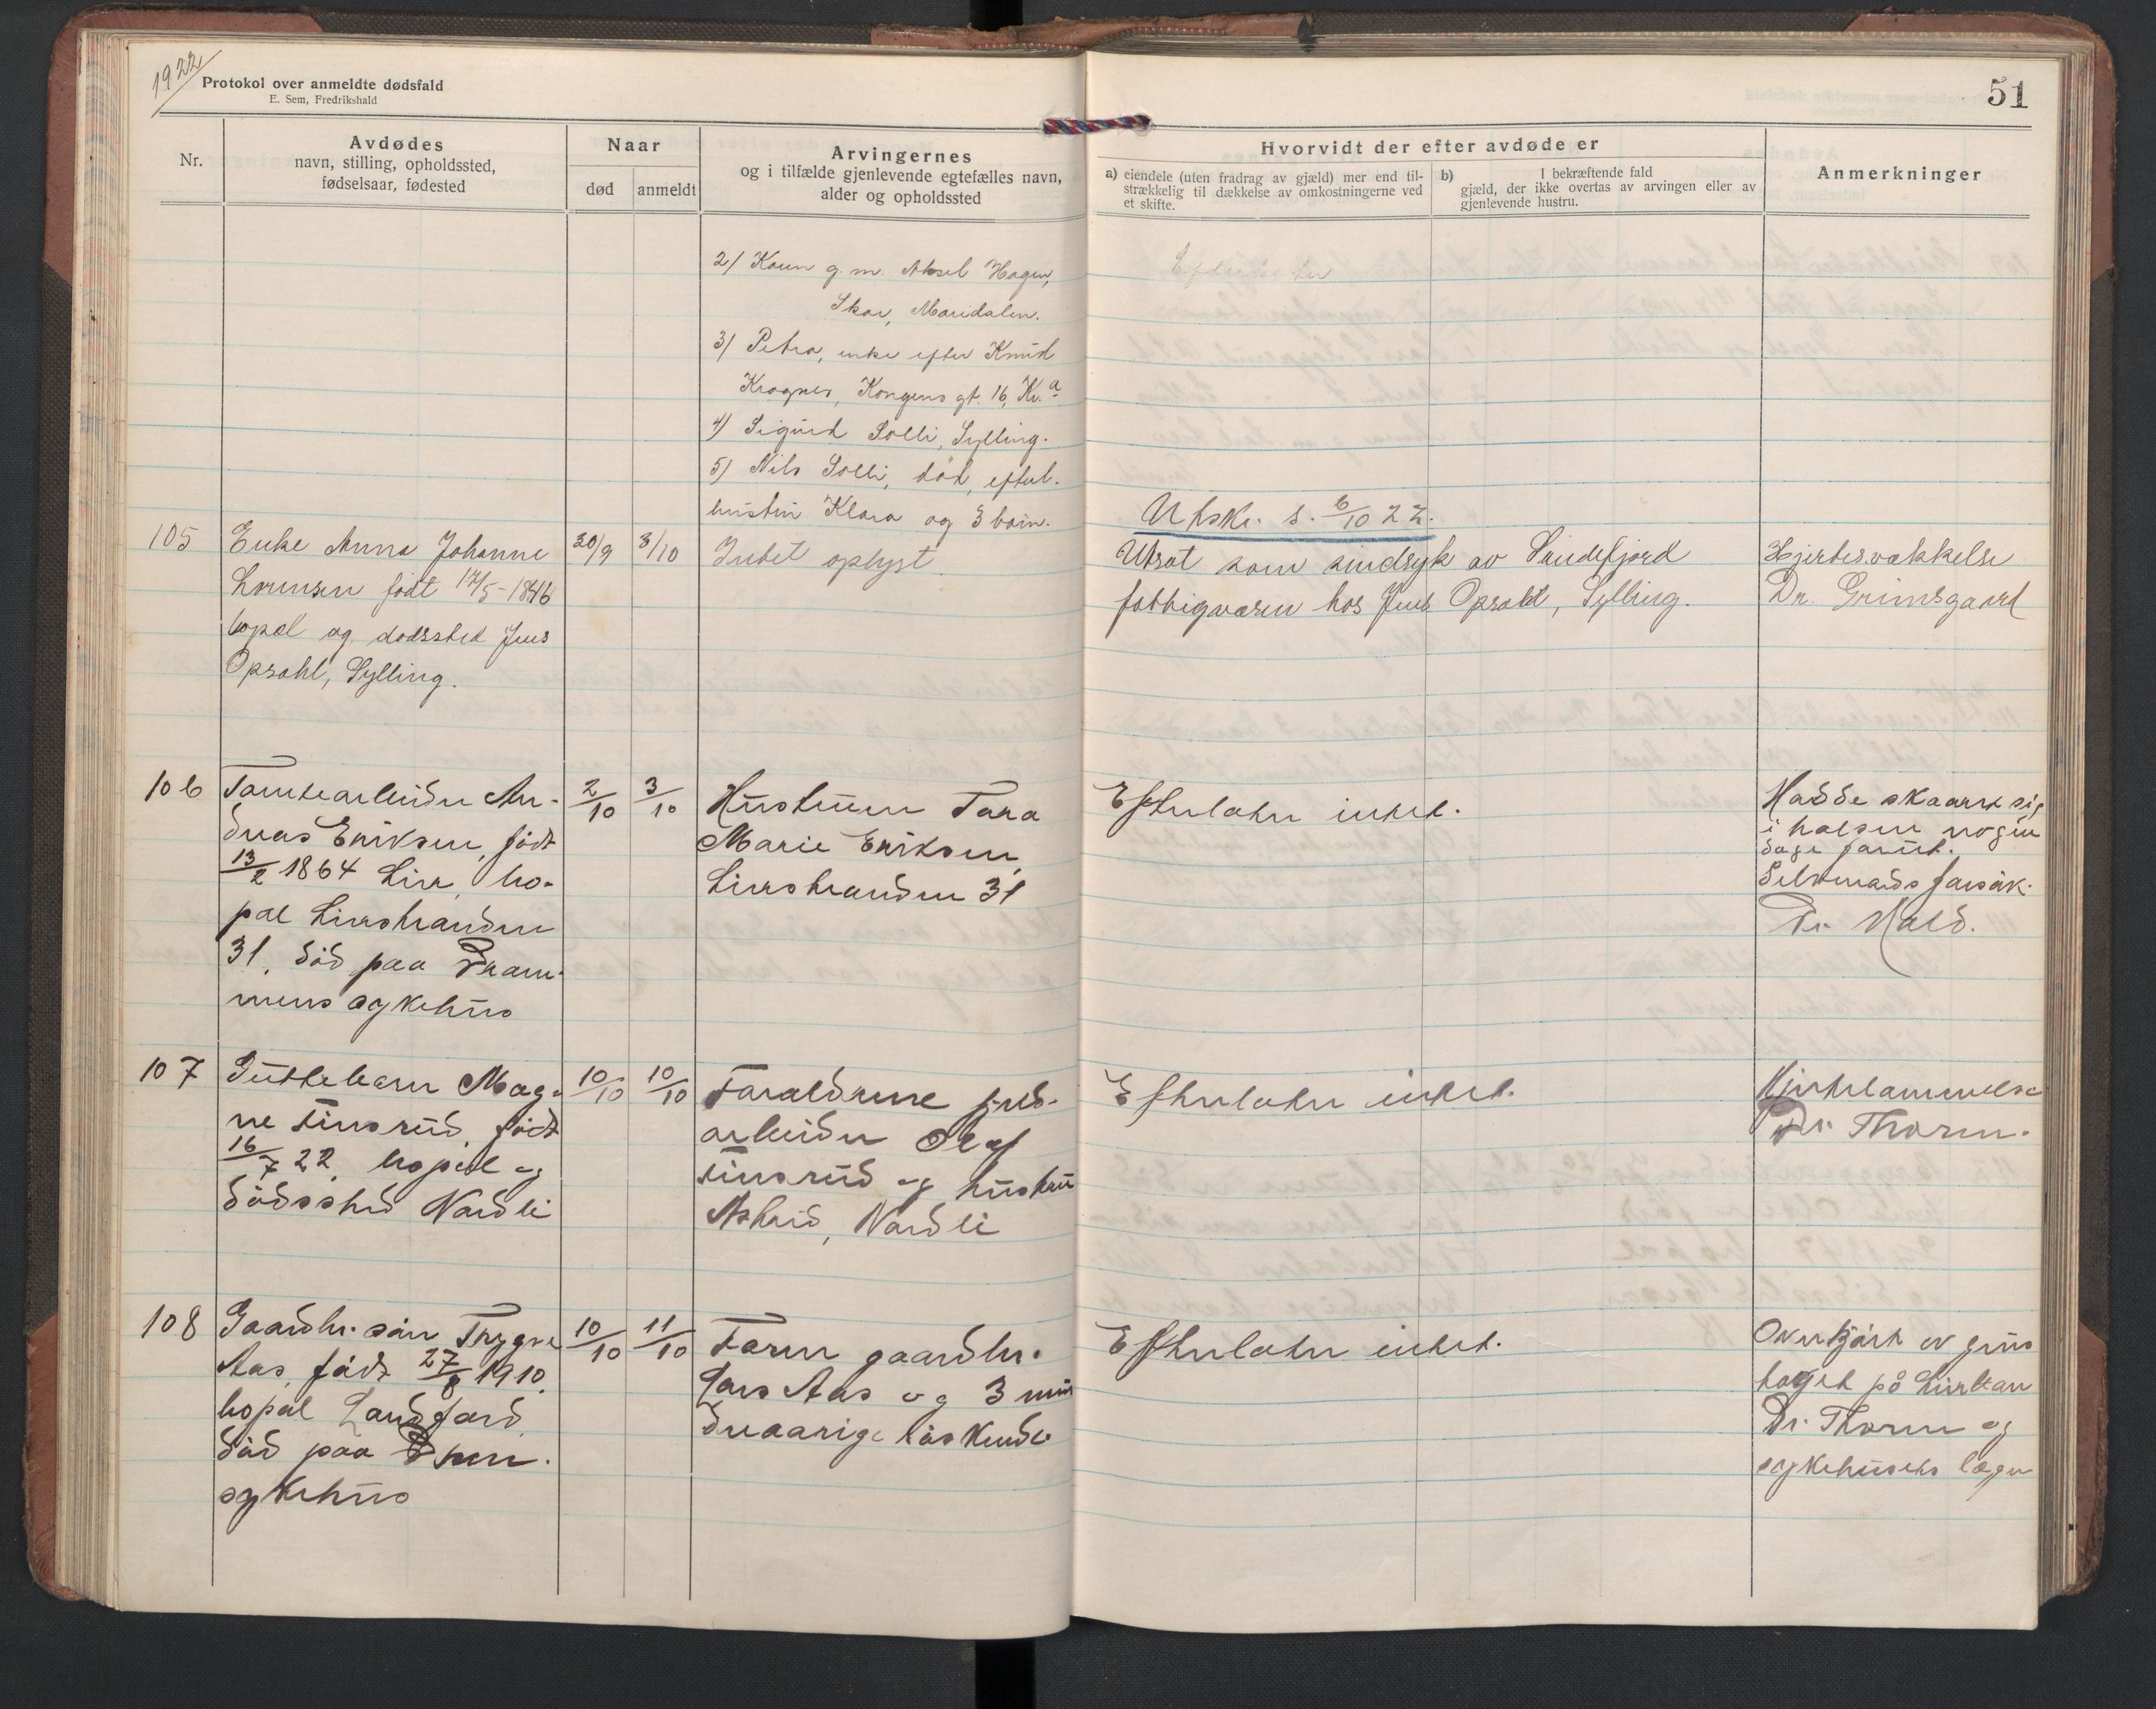 1922
Protokol over anmeldte dødsfald
E. Sem, Fredrikshald
51
Nr.
Avdødes
navn, stilling, opholdssted,
fødselsaar, fødested
Naar
død
anmeldt
Arvingernes
og i tilfælde gjenlevende egtefælles navn,
alder og opholdssted
Hvorvidt der efter avdøde er
a) eiendele (uten fradrag av gjæld) mer end til-
strækkelig til dækkelse av omkostningerne ved
et skifte.
b) I bekræftende fald
gjæld, der ikke overtas av arvingen eller av
gjenlevende hustru.
Anmerkninger
2) Karen g. m. Aksel Hagen,
Skar, Maridalen.
3) Petra, enke efter Knut
Kongens gt. 16, Kr.a
4) Sigurd Solli, Sylling.
5) Nils Solli, död, efterl.
hustru Klara og 3 barn.
Utskr. s. 6/10 22.
105
Enke Anna Johanne
Lorensen født 17/5-1846
bopæl og dødssted Jens
Opsahl, Sylling.
30/9
3/10
Intet oplyst.
Utsat som sindsyk av Sandefjord
fattigvæsen hos Jens Opsahl, Sylling.
Hjertesvækkelse
Dr. Grimsgaard
106
Tomtearbeider An-
dreas Eriksen, født
13/2 1864 Lier, bo-
pæl Lierstranden
31, död paa Dram-
mens sykehus
2/10
3/10
Hustruen Tora
Marie Eriksen,
Lierstranden 31
Efterlater intet.
Hadde skaaret sig
i halsen nogen
dage forut.
Selvmordsforsök.
Dr. Hald.
107
Guttebarn Mag-
ne Finsrud, født
16/7 22, bopæl og
dödssted Nordli
10/10
10/10
Foreldrene
arbeider Olaf
Finsrud og hustru
Astrid, Nordli
Efterlater intet.
Hjertelammelse
Dr. Thorm.
108
Gaardbr. sön Trygve
Aas, född 27/8 1910,
bopæl Landfard,
död paa Dmen.
sykehus
10/10
11/10
Faren gaardbr.
Lars Aas og 3 min
dreaarige söskende
Efterlater intet.
Overkjört av grus
toget på Lierban
Dr. Thorm og
sykehusets læge